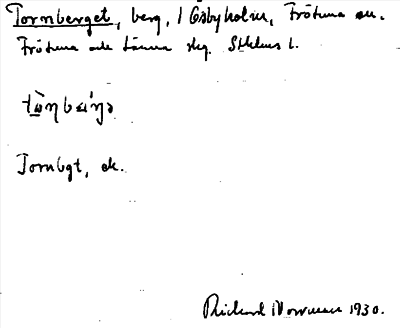 Tornberget, berg, / Osbyholm, Frötuna sn.
Frötuna och Länna skg. Sthlms l.
tɯ̀ŋbæ´ŋə
Tornbgt, ek.
Rickard 1930.